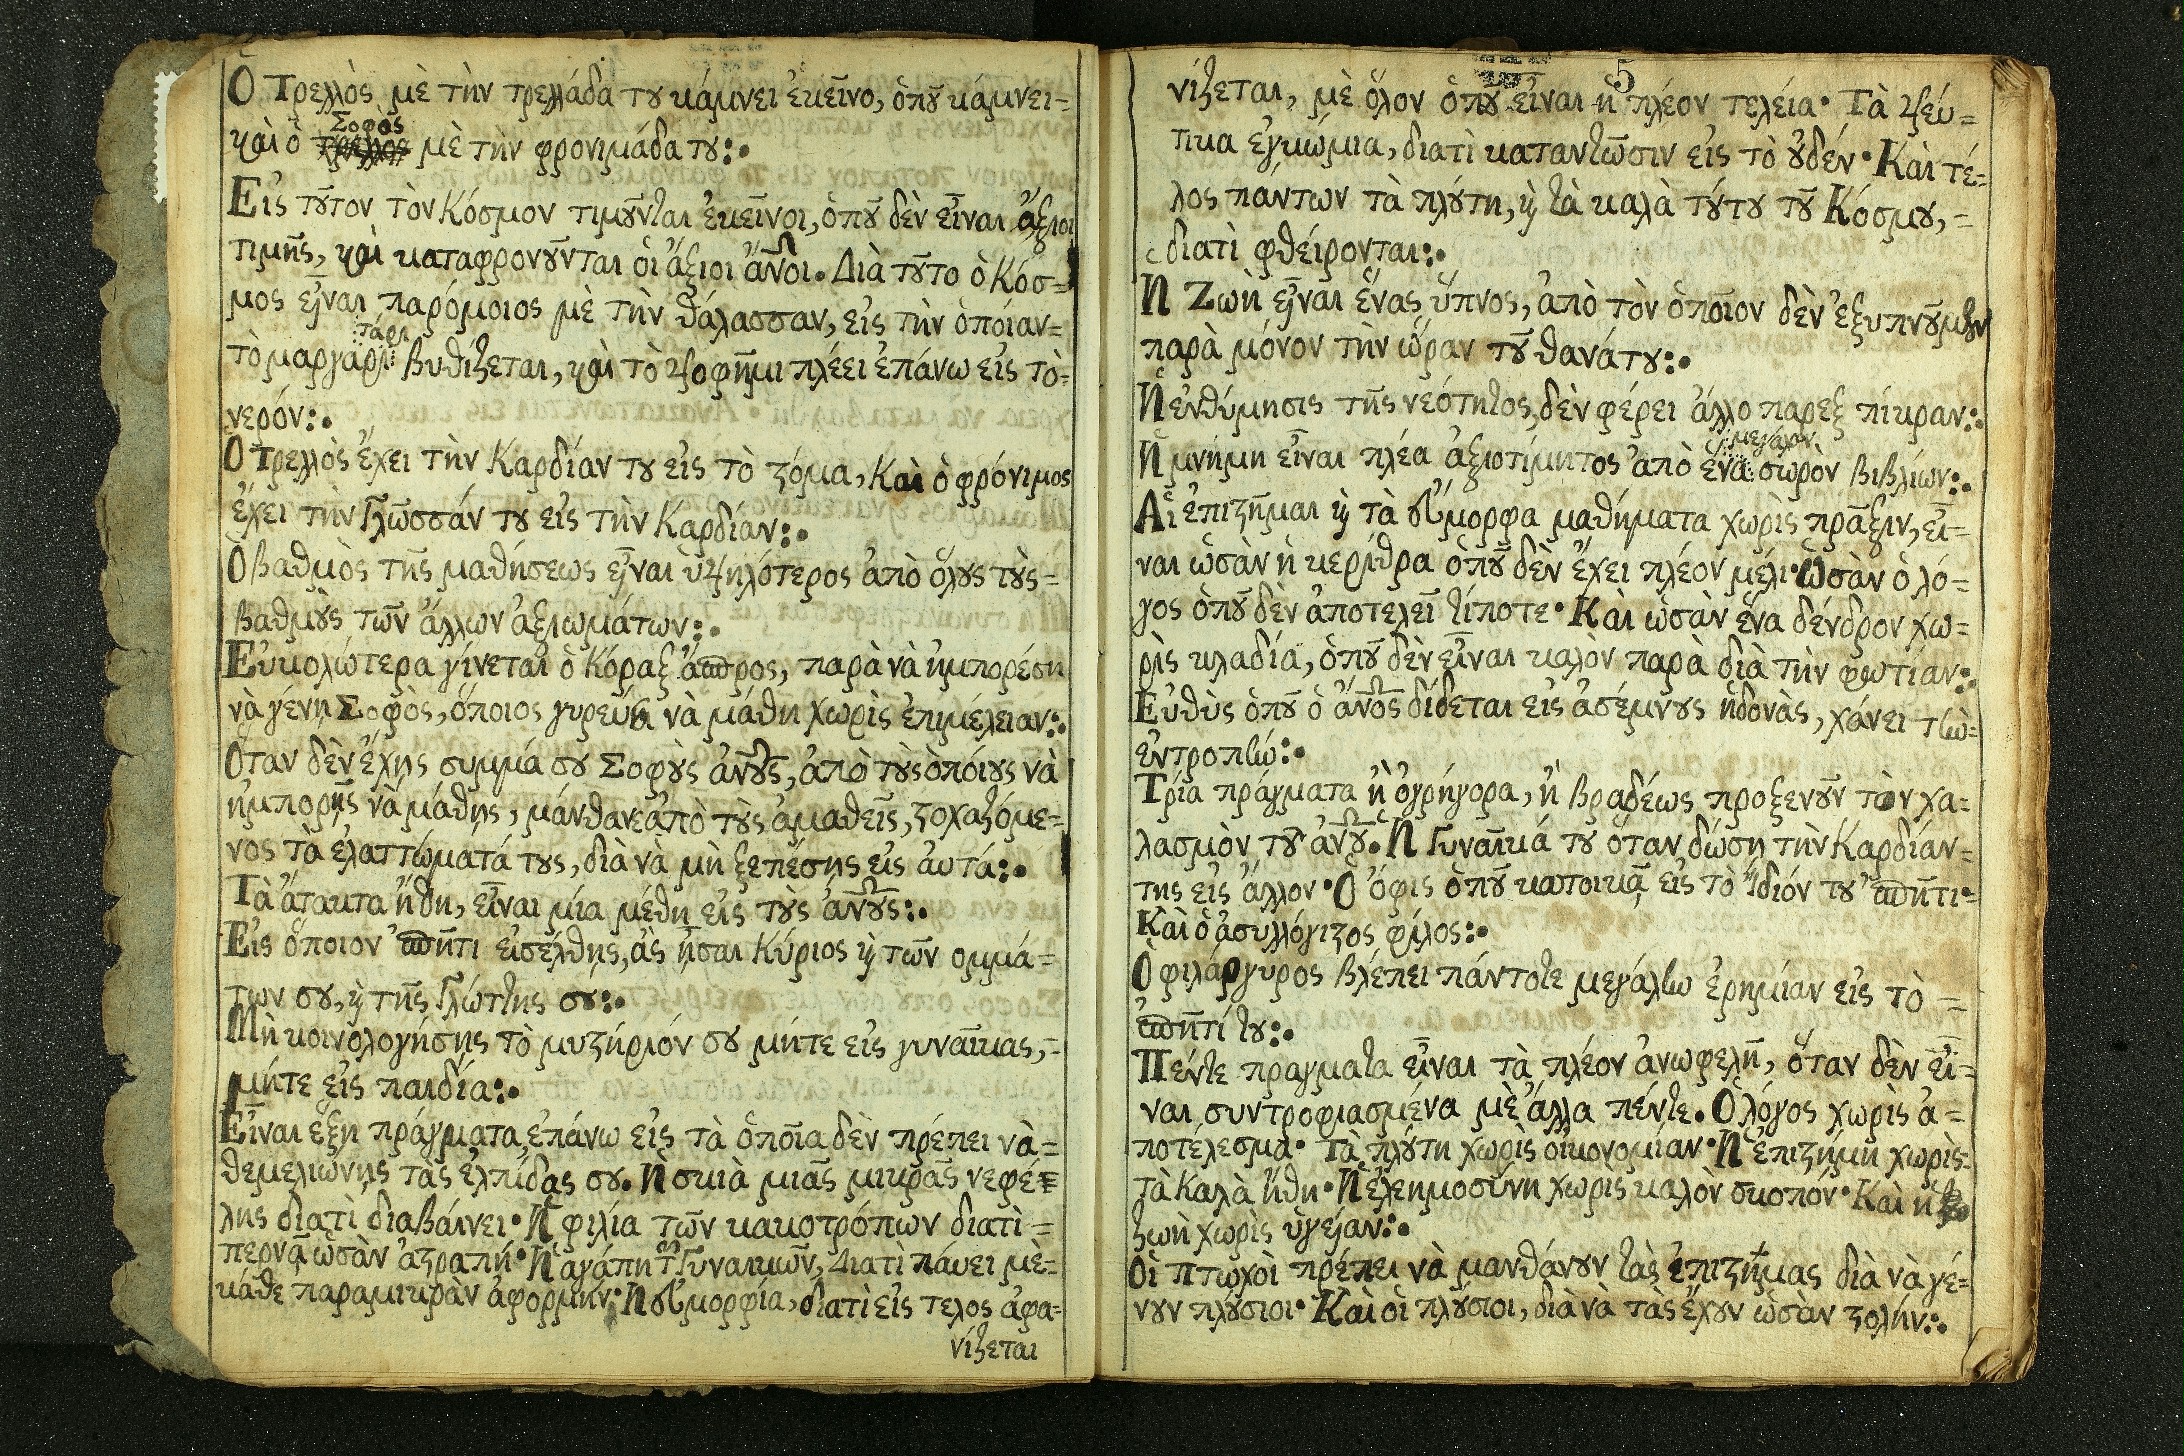 Ὁ Τρελλὸς μὲ τὴν τρελλάδα τȣ κάμνει ἐκεῖνο, ὁπȣ͂ κάμνει=
καὶ ὁ Σοφὸς μὲ τὴν φρονιμάδα τȣ:.
Εἰς τȣ͂τον τὸν Κόσμον τιμȣ͂νται ἐκεῖνοι, ὁπȣ͂ δὲν εἶναι ἄξιοι
τιμῆς, καὶ καταφρονȣ͂νται οἱ ἄξιοι ἄν̅οι. Διὰ τȣ͂το ὁ Κόσ=
μος εἶναι παρόμοιος μὲ τὴν θάλασσαν, εἰς τὴν ὁποίαν=
τὸ μαργαριτάρι βυθίζεται, καὶ τὸ ψοφῆμι πλέει ἐπάνω εἰς τὸ=
νερόν:.
Ὁ Τρελλὸς ἔχει τὴν Καρδίαν τȣ εἰς τὸ ϛόμα, Καὶ ὁ φρόνιμος
ἔχει τὴν Γλῶσσάν τȣ εἰς τὴν Καρδίαν:.
Ὁ βαθμὸς τῆς μαθήσεως εἶναι ὑψηλότερος ἀπὸ ὅλȣς τȣ̀ς=
βαθμȣ̀ς τῶν ἄλλων ἀξιωμάτων:.
Εὐκολώτερα γίνεται ὁ Κόραξ ἄσπρος, παρὰ νὰ ἠμπορέσῃ
νὰ γένῃ Σοφὸς, ὅποιος γυρεύει νὰ μάθῃ χωρὶς ἐπιμέλειαν:.
Ὅταν δὲν ἔχῃς σιμμά σȣ Σοφȣ̀ς ἀν̅ȣς, ἀπὸ τȣ̀ς ὁποίȣς νὰ
ἠμπορῇς νὰ μάθῃς, μάνθανε ἀπὸ τȣ̀ς ἀμαθεῖς, ϛοχαζόμε=
νος τὰ ἐλαττώματά τȣς, διὰ νὰ μὴ ξεπέσῃς εἰς ἀυτά:.
Τὰ ἄτακτα ἤθη, εἶναι μία μέθη εἰς τȣ̀ς ἀν̅ȣς:.
Εἰς ὅποιον ὁσπῆτι εἰσέλθῃς, ἂς ἦσαι Κύριος ϗ τῶν ομμά=
των σȣ, ϗ τῆς Γλώττης σȣ:.
Μὴ κοινολογήσῃς τὸ μυϛήριόν σȣ μήτε εἰς γυναῖκας,=
μήτε εἰς παιδία:.
Εἶναι ἕξη πράγματα ἐπάνω εἰς τὰ ὁποῖα δὲν πρέπει νὰ=
θεμελιώνῃς τὰς ἐλπίδας σȣ. Ἡ σκιὰ μιᾶς μικρᾶς νεφέ=
λης διατὶ διαβαίνει. Ἡ φιλία τῶν κακοτρόπων διατὶ=
περνᾷ ὡσὰν ἀϛραπή. Ἡ ἀγάπη τῶν Γυναικῶν, Διατὶ πάυει μὲ=
κάθε παραμικρὰν ἀφορμήν. Ἡ ὀυμορφία, διατὶ εἰς τελος ἀφα=
νίζεται
5
νίζεται, μὲ ὅλον ὁπȣ͂ εἶναι ἡ πλέον τελεία. Τὰ ψεύ=
τικα ἐγκώμια, διατὶ καταντῶσιν εἰς τὸ ȣ̓δέν. Καὶ τέ=
λος πάντων τὰ πλȣ́τη, ϗ τὰ καλὰ τȣ́τȣ τȣ͂ Κόσμȣ,=
διατὶ φθείρονται:.
Ἡ Ζωὴ εἶναι ἕνας ὕπνος, ἀπὸ τὸν ὁποῖον δὲν ἐξυπνȣ͂μεν
παρὰ μόνον τὴν ὥραν τȣ͂ θανάτȣ:.
Ἡ ἐνθύμησις τῆς νεότητος, δὲν φέρει ἄλλο παρεξ πίκραν:.
Ἡ μνήμη εἶναι πλέα ἀξιοτίμητος ἀπὸ ἕνα μεγάλον σωρὸν βιβλίων:.
Αἱ ἐπιϛῆμαι ϗ τὰ ὀύμορφα μαθήματα χωρὶς πρᾶξιν, εἶ=
ναι ὡσὰν ἡ κερίθρα ὁπȣ͂ δὲν ἔχει πλέον μέλι. Ὡσὰν ὁ λό=
γος ὁπȣ͂ δὲν ἀποτελεῖ τίποτε. Καὶ ὡσὰν ἕνα δένδρον χω=
ρὶς κλαδία, ὁπȣ͂ δὲν εἶναι καλὸν παρὰ διὰ τὴν φωτίαν:.
Εὐθὺς ὁπȣ͂ ὁ ἄν̅ος δίδεται εἰς ἀσέμνȣς ἡδονὰς, χάνει τὴν=
ἐντροπήν:.
Τρία πράγματα ἢ ὀγρήγορα, ἢ βραδέως προξενȣ͂ν τὸν χα=
λασμὸν τȣ͂ ἀν̅ȣ. Ἡ Γυναῖκά τȣ ὅταν δώσῃ τὴν Καρδίαν=
της εἰς ἄλλον. Ὁ ὄφις ὁπȣ͂ κατοικᾷ εἰς τὸ ἴδιόν τȣ ὁσπῆτι.
Καὶ ὁ ἀσυλλόγιϛος φίλος:.
Ὁ φιλάργυρος βλέπει πάντοτε μεγάλην ἐρημίαν εἰς τὸ=
ὁσπῆτί τȣ:.
Πέντε πραγματα εἶναι τὰ πλέον ἀνωφελῆ, ὅταν δὲν εἶ=
ναι συντροφιασμένα μὲ ἄλλα πέντε. Ὁ λόγος χωρὶς ἀ=
ποτέλεσμα. Τὰ πλȣ́τη χωρὶς οἰκονομίαν. Ἡ ἐπιϛήμη χωρὶς=
τὰ Καλὰ ἤθη. Ἡ ἐλεημοσύνη χωρὶς καλὸν σκοπόν. Καὶ ἡ
ζωὴ χωρὶς ὑγείαν:.
Οἱ πτωχοὶ πρέπει νὰ μανθάνȣν τὰς ἐπιϛήμας διὰ νὰ γέ=
νȣν πλȣ́σιοι. Καὶ οἱ πλȣ́σιοι, διὰ νὰ τὰς ἔχȣν ὡσὰν ϛολήν:.